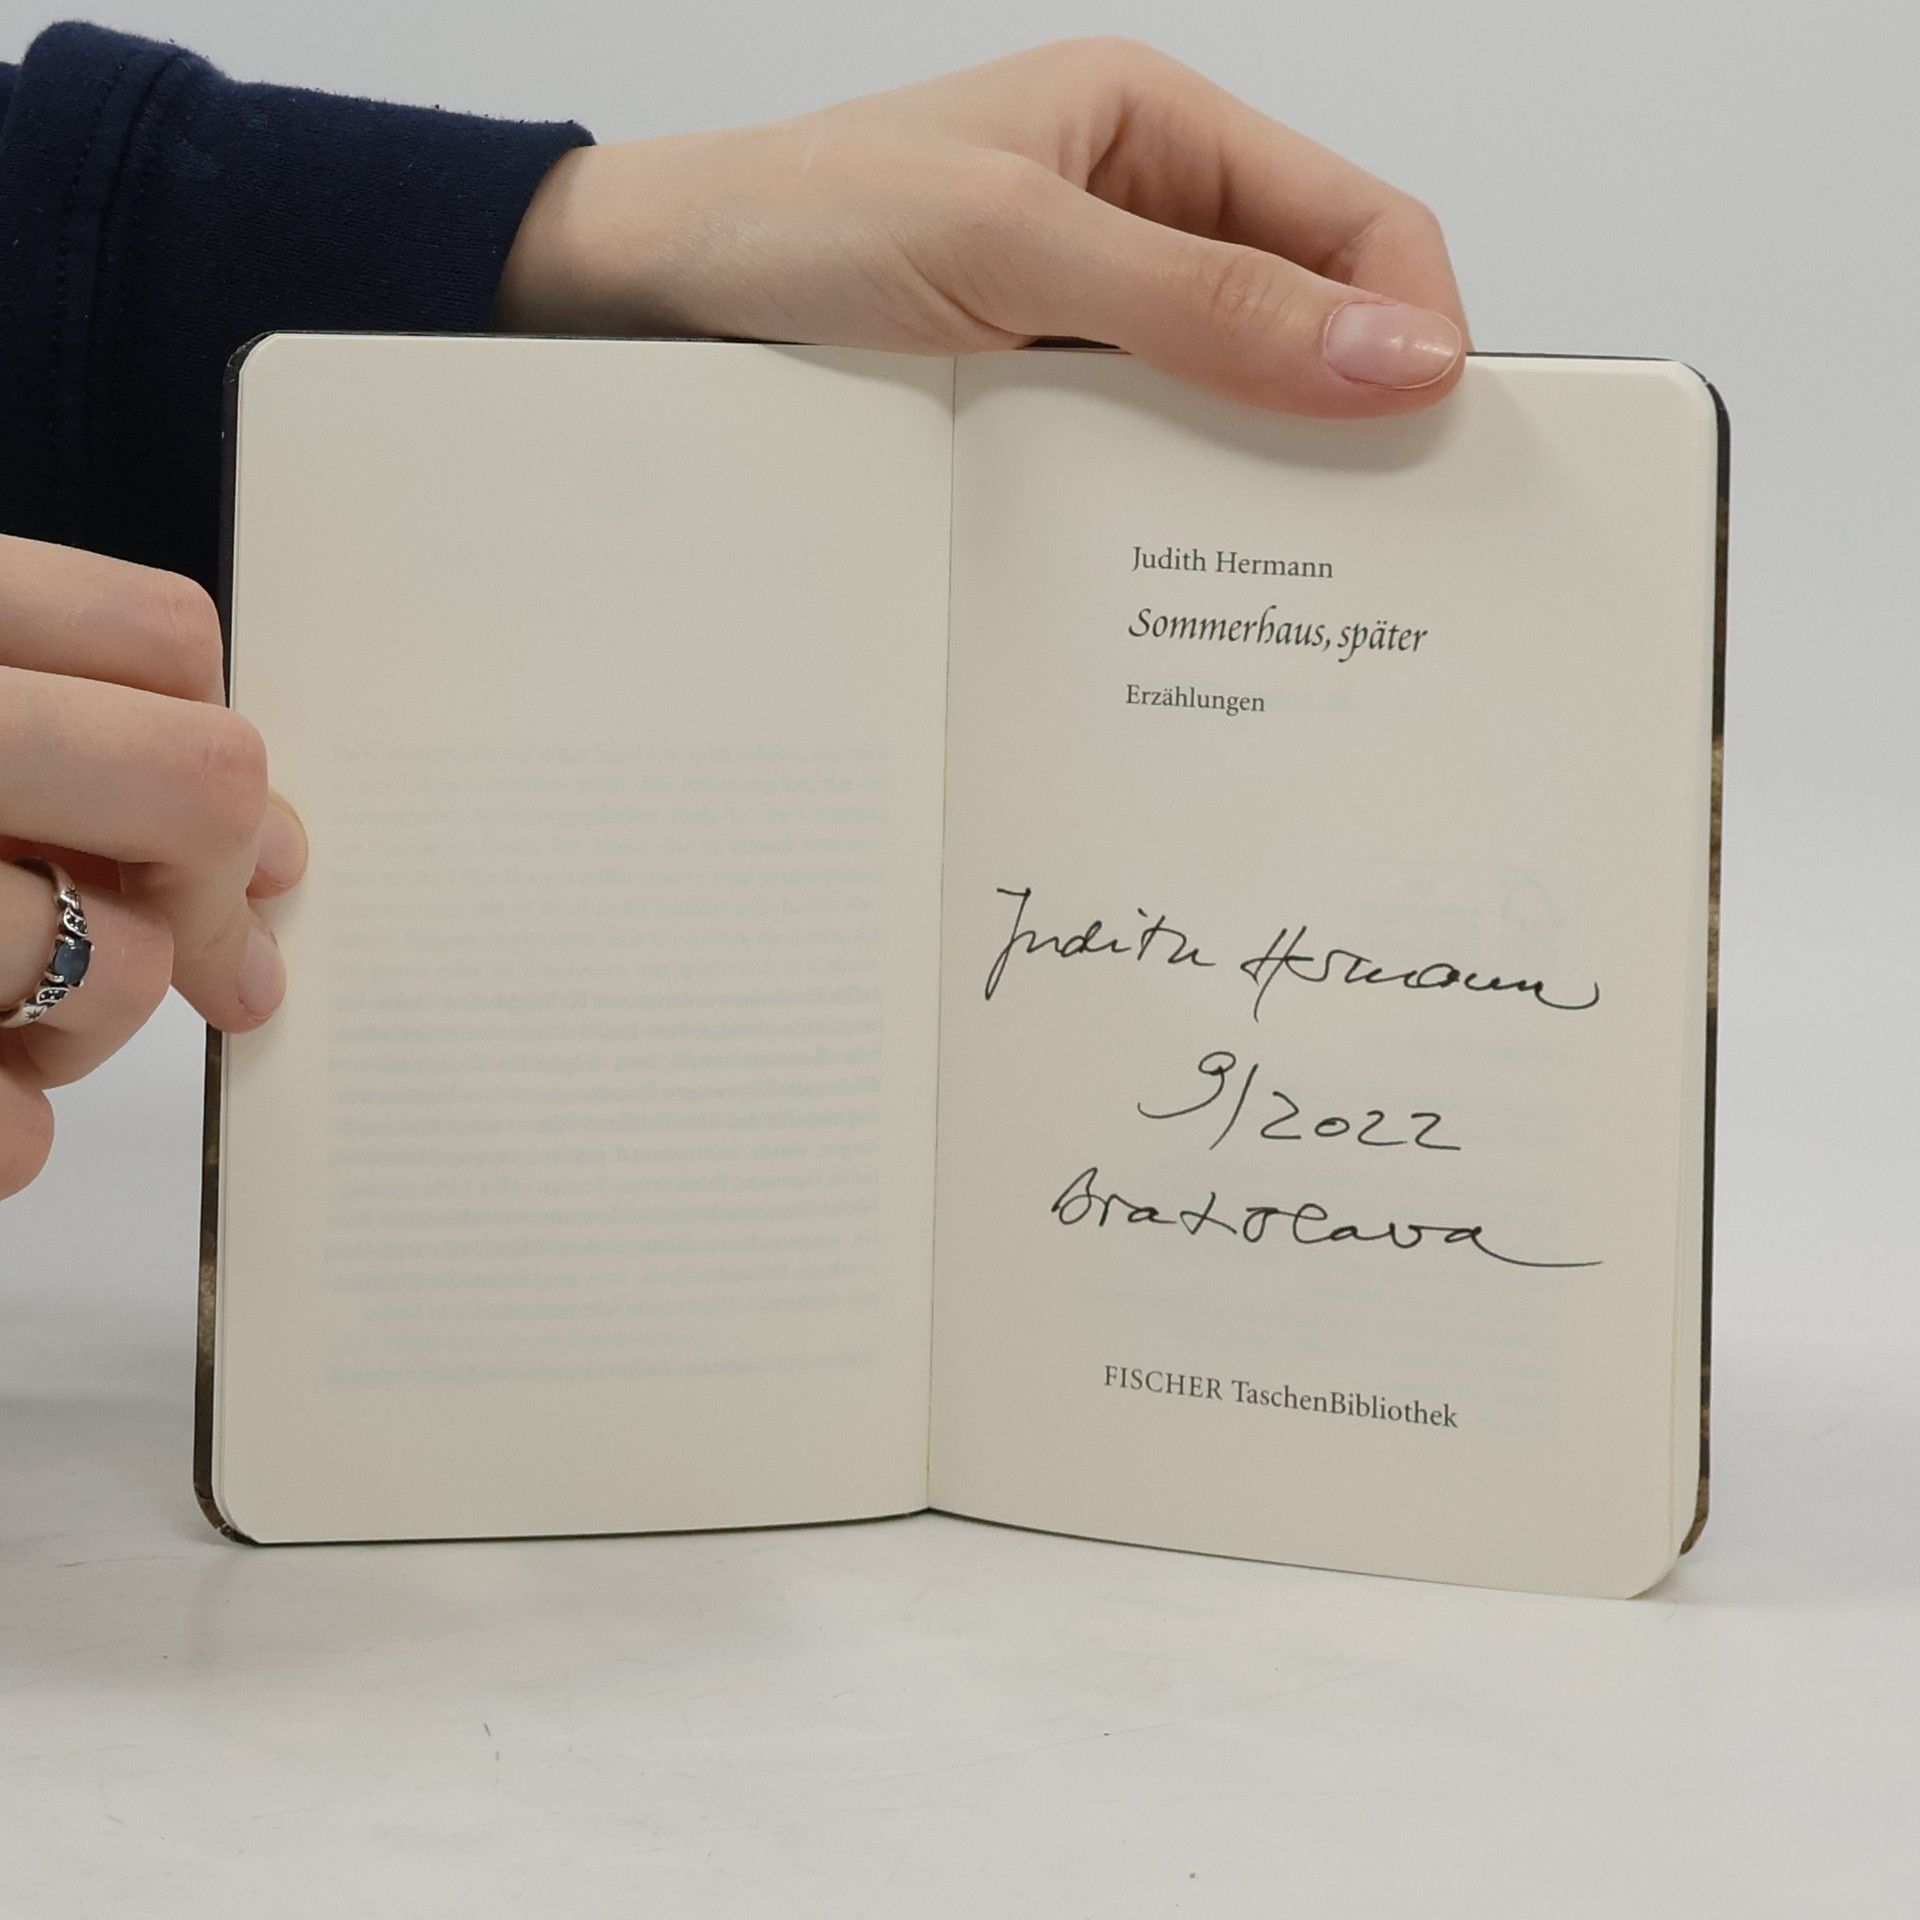 Judith Hermann
Sommerhaus, später
Erzählungen
Judith Hermann
9/2022
Bratislava
FISCHER TaschenBibliothek